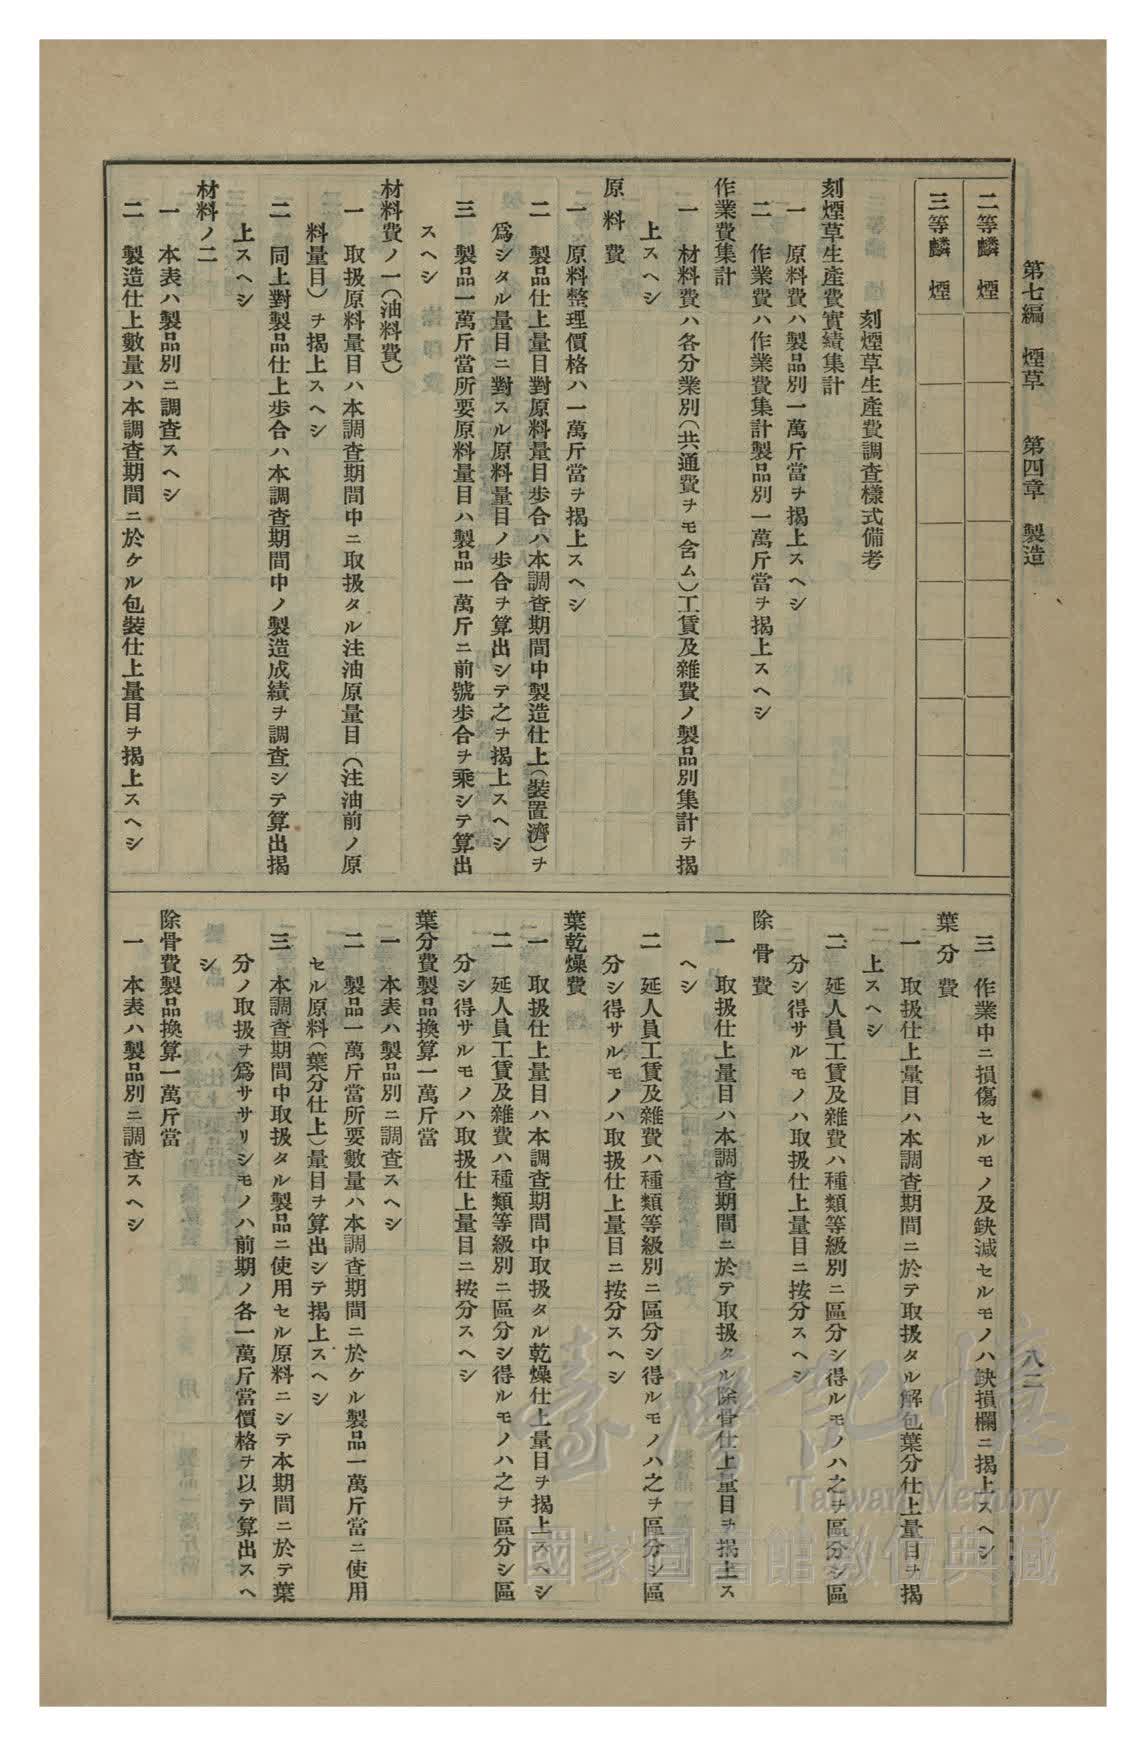 第七編　煙草　　第四章　製造
八二
二等麟煙
三等麟煙
刻煙草生產費調查樣式備考
刻煙草生產費實績集計
一　原料費ハ製品別一萬斤當ヲ揭上スヘシ
二　作業費ハ作業費集計製品別一萬斤當ヲ揭上スヘシ
作業費集計
一　材料費ハ各分業別（共通費ヲモ含ム）工賃及雜費ノ製品別集計ヲ揭
上スヘシ
原料費
一　原料整理價格ハ一萬斤當ヲ揭上スヘシ
二　製品仕上量目對原料量目步合ハ本調查期間中製造仕上（裝置濟）ヲ
爲シタル量目ニ對スル原料量目ノ步合ヲ算出シテ之ヲ揭上スヘシ
三　製品一萬斤當所要原料量目ハ製品一萬斤ニ前號步合ヲ乘シテ算出
スヘシ
材料費ノ一（油料費）
一　取扱原料量目ハ本調查期間中ニ取扱タル注油原量目（注油前ノ原
料量目）ヲ揭上スヘシ
二　同上對製品仕上步合ハ本調查期間中ノ製造成績ヲ調查シテ算出揭
上スヘシ
材料ノ二
一　本表ハ製品別ニ調查スヘシ
二　製造仕上數量ハ本調查期間ニ於ケル包裝仕上量目ヲ揭上スヘシ
三　作業中ニ損傷セルモノ及缺減セルモノハ缺損欄ニ揭上スヘシ
葉分費
一　取扱仕上量目ハ本調查期間ニ於テ取扱タル解包葉分仕上量目ヲ揭
上スヘシ
二　延人員工賃及雜費ハ種類等級別ニ區分シ得ルモノハ之ヲ區分シ區
分シ得サルモノハ取扱仕上量目ニ按分スヘシ
除骨費
一　取扱仕上量目ハ本調查期間ニ於テ取扱タル除骨仕上量目ヲ揭上ス
ヘシ
二　延人員工賃及雜費ハ種類等級別ニ區分シ得ルモノハ之ヲ區分シ區
分シ得サルモノハ取扱仕上量目ニ按分スヘシ
葉乾燥費
一　取扱仕上量目ハ本調查期間中取扱タル乾燥仕上量目ヲ揭上スヘシ
二　延人員工賃及雜費ハ種類等級別ニ區分シ得ルモノハ之ヲ區分シ區
分シ得サルモノハ取扱仕上量目ニ按分スヘシ
葉分費製品換算一萬斤當
一　本表ハ製品別ニ調查スヘシ
二　製品一萬斤當所要數量ハ本調查期間ニ於ケル製品一萬斤當ニ使用
セル原料（葉分仕上）量目ヲ算出シテ揭上スヘシ
三　本調查期間中取扱タル製品ニ使用セル原料ニシテ本期間ニ於テ葉
分ノ取扱ヲ爲ササリシモノハ前期ノ各一萬斤當價格ヲ以テ算出スヘ
シ
除骨費製品換算一萬斤當
一　本表ハ製品別ニ調查スヘシ
臺灣記憶
Taiwan Memory
國家圖書館數位典藏